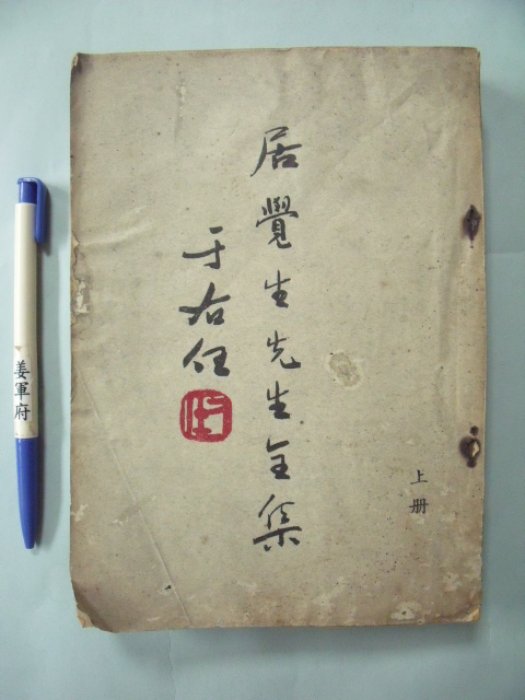 居覺生先生全集
于右任
上册
姜軍府